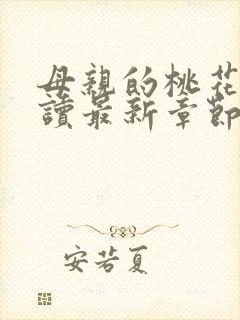 母親的桃花
讀最新章節
安若夏